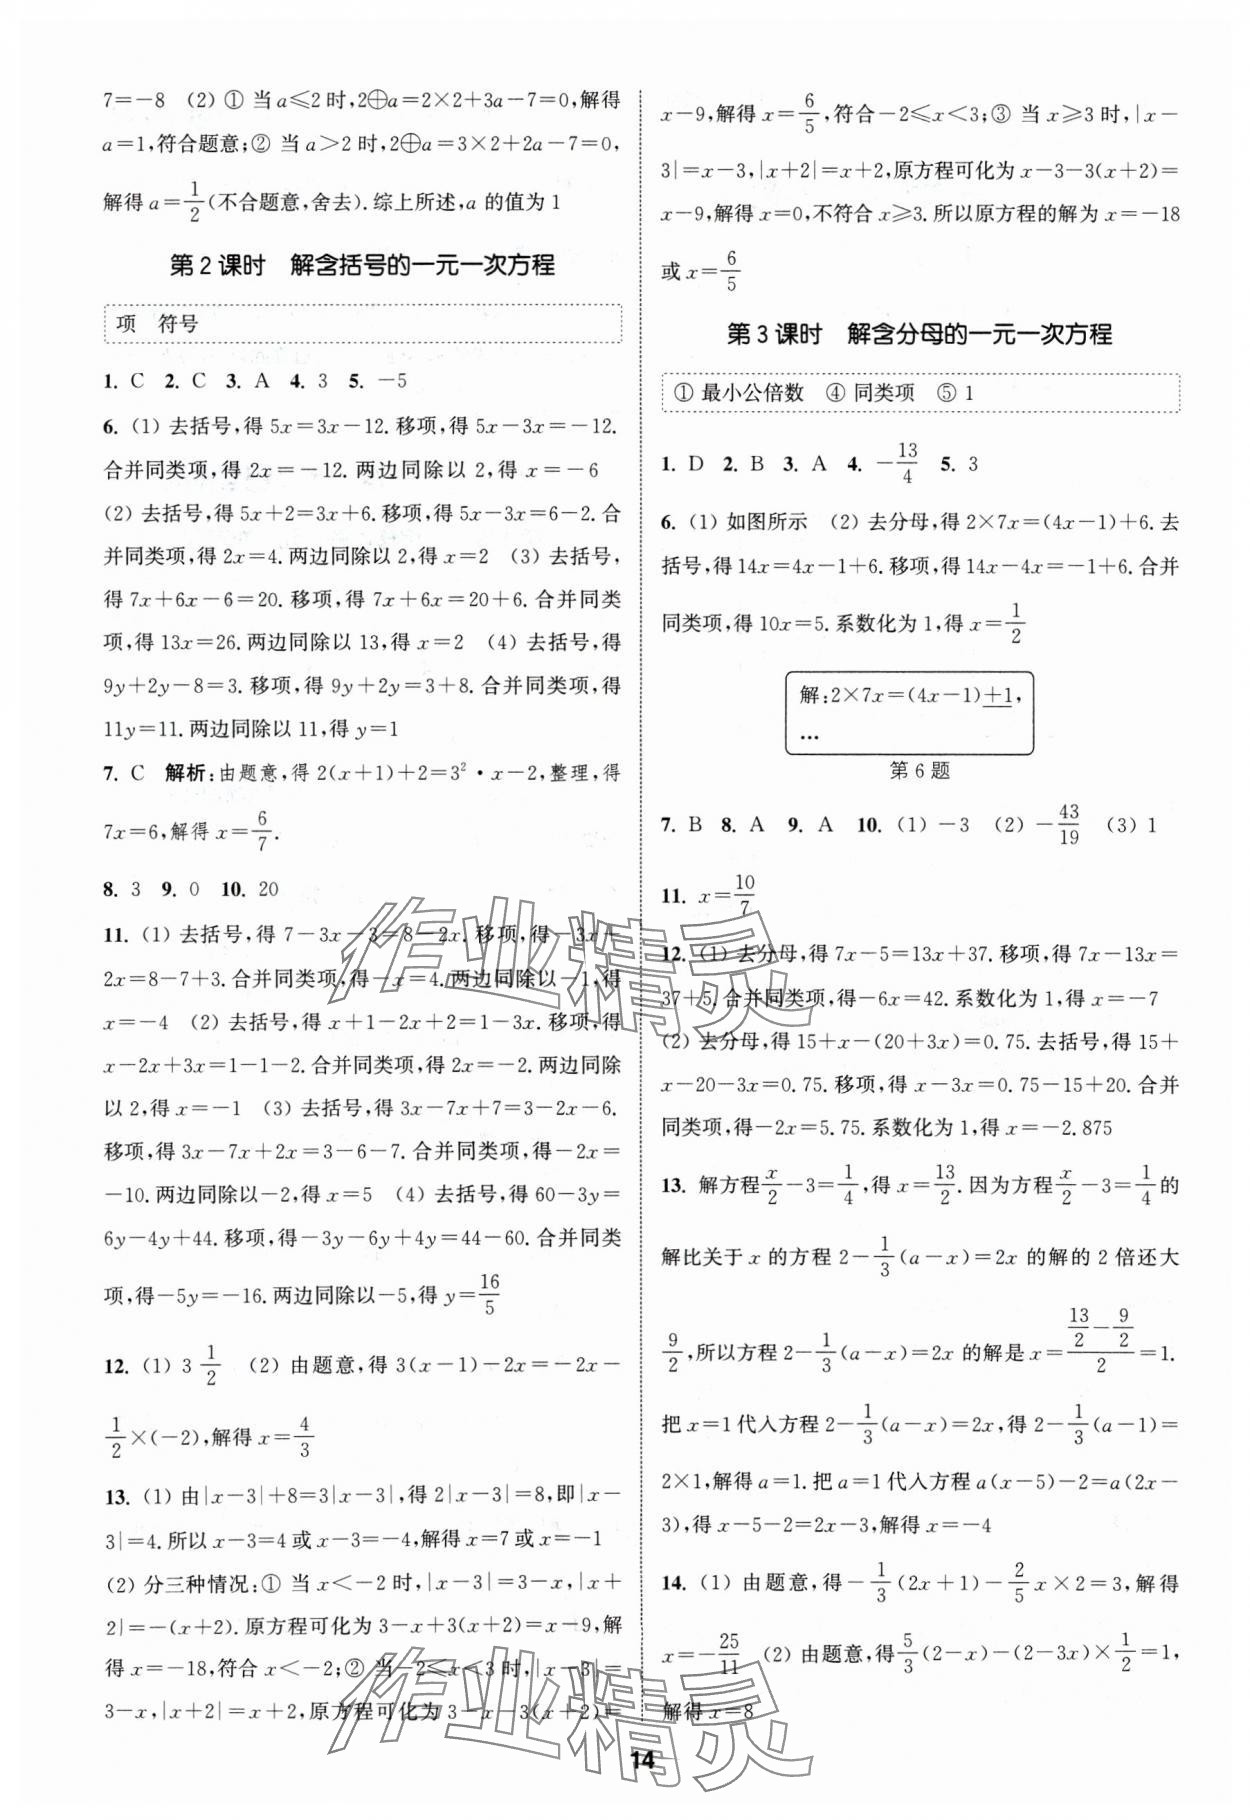 7=-8 (2) ① 当 a≤2 时,2⊕a=2×2+3a-7=0,解得
a=1,符合题意;② 当 a>2 时,2⊕a=3×2+2a-7=0,
解得 a=1/2(不合题意,舍去).综上所述,a 的值为 1
第 2 课时 解含括号的一元一次方程
项 符号
1. C 2. C 3. A 4. 3 5. -5
6. (1) 去括号,得 5x=3x-12.移项,得 5x-3x=-12.
合并同类项,得 2x=-12.两边同除以 2,得 x=-6
(2) 去括号,得 5x+2=3x+6.移项,得 5x-3x=6-2.合
并同类项,得 2x=4.两边同除以 2,得 x=2 (3) 去括号,
得 7x+6x-6=20.移项,得 7x+6x=20+6.合并同类
项,得 13x=26.两边同除以 13,得 x=2 (4) 去括号,得
9y+2y-8=3.移项,得 9y+2y=3+8.合并同类项,得
11y=11.两边同除以 11,得 y=1
7. C 解析:由题意,得 2(x+1)+2=3²·x-2,整理,得
7x=6,解得 x=6/7.
8. 3 9. 0 10. 20
11. (1) 去括号,得 7-3x-3=8-2x.移项,得-3x+
2x=8-7+3.合并同类项,得-x=4.两边同除以-1,得
x=-4 (2) 去括号,得 x+1-2x+2=1-3x.移项,得
x-2x+3x=1-1-2.合并同类项,得 2x=-2.两边同除
以 2,得 x=-1 (3) 去括号,得 3x-7x+7=3-2x-6.
移项,得 3x-7x+2x=3-6-7.合并同类项,得-2x=
-10.两边同除以-2,得 x=5 (4) 去括号,得 60-3y=
6y-4y+44.移项,得-3y-6y+4y=44-60.合并同类
项,得-5y=-16.两边同除以-5,得 y=16/5
12. (1) 3 1/2 (2) 由题意,得 3(x-1)-2x=-2x-
1/2×(-2),解得 x=4/3
13. (1) 由|x-3|+8=3|x-3|,得 2|x-3|=8,即|x-
3|=4.所以 x-3=4 或 x-3=-4,解得 x=7 或 x=-1
(2) 分三种情况:① 当 x<-2 时,|x-3|=3-x,|x+
2|=-(x+2).原方程可化为 3-x+3(x+2)=x-9,解
得 x=-18,符合 x<-2;② 当-2≤x<3 时,|x-3|=
3-x,|x+2|=x+2,原方程可化为 3-x-3(x+2)=
x-9,解得 x=6/5,符合-2≤x<3;③ 当 x≥3 时,|x-
3|=x-3,|x+2|=x+2,原方程可化为 x-3-3(x+2)=
x-9,解得 x=0,不符合 x≥3.所以原方程的解为 x=-18
或 x=6/5
第 3 课时 解含分母的一元一次方程
① 最小公倍数 ④ 同类项 ⑤ 1
1. D 2. B 3. A 4. -13/4 5. 3
6. (1) 如图所示 (2) 去分母,得 2×7x=(4x-1)+6.去
括号,得 14x=4x-1+6.移项,得 14x-4x=-1+6.合并
同类项,得 10x=5.系数化为 1,得 x=1/2
解:2×7x=(4x-1)+1,
…
第 6 题
7. B 8. A 9. A 10. (1) -3 (2) -43/19 (3) 1
11. x=10/7
12. (1) 去分母,得 7x-5=13x+37.移项,得 7x-13x=
37+5.合并同类项,得-6x=42.系数化为 1,得 x=-7
(2) 去分母,得 15+x-(20+3x)=0.75.去括号,得 15+
x-20-3x=0.75.移项,得 x-3x=0.75-15+20.合并
同类项,得-2x=5.75.系数化为 1,得 x=-2.875
13. 解方程x/2-3=1/4,得 x=13/2.因为方程x/2-3=1/4的
解比关于 x 的方程 2-1/3(a-x)=2x 的解的 2 倍还大
9/2,所以方程 2-1/3(a-x)=2x 的解是 x=(13/2-9/2)/2=1.
把 x=1 代入方程 2-1/3(a-x)=2x,得 2-1/3(a-1)=
2×1,解得 a=1.把 a=1 代入方程 a(x-5)-2=a(2x-
3),得 x-5-2=2x-3,解得 x=-4
14. (1) 由题意,得-1/3(2x+1)-2/5x×2=3,解得
x=-25/11 (2) 由题意,得5/3(2-x)-(2-3x)×1/2=1,
解得 x=8
14
作业精灵
作业精灵